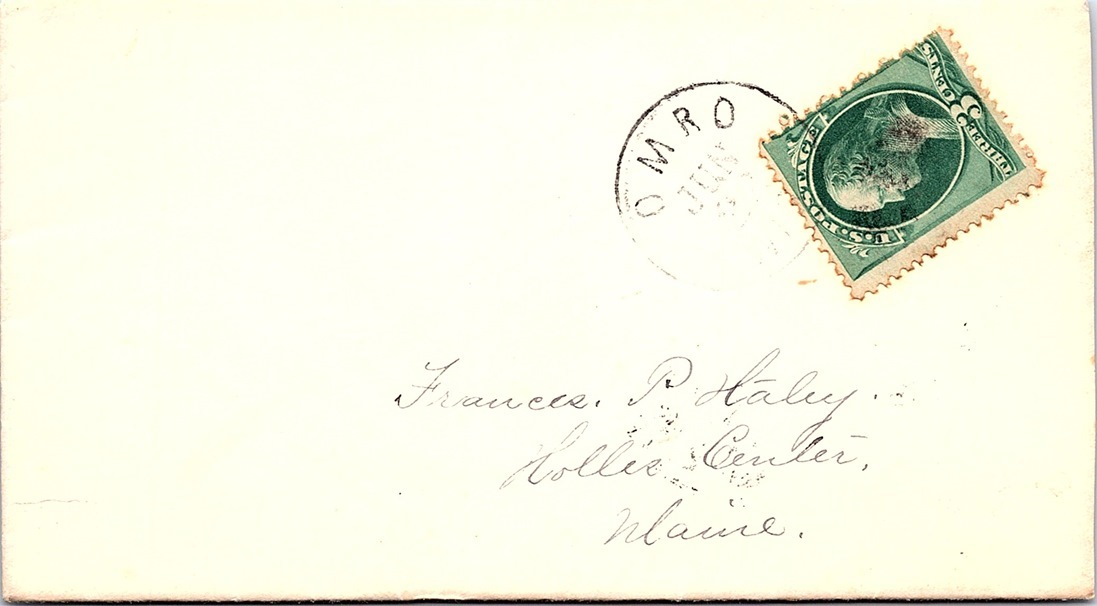 OMRO
JUN
U.S. POSTAGE
3 CENTS
Frances. P. Haley.
Hollis Center,
Maine.